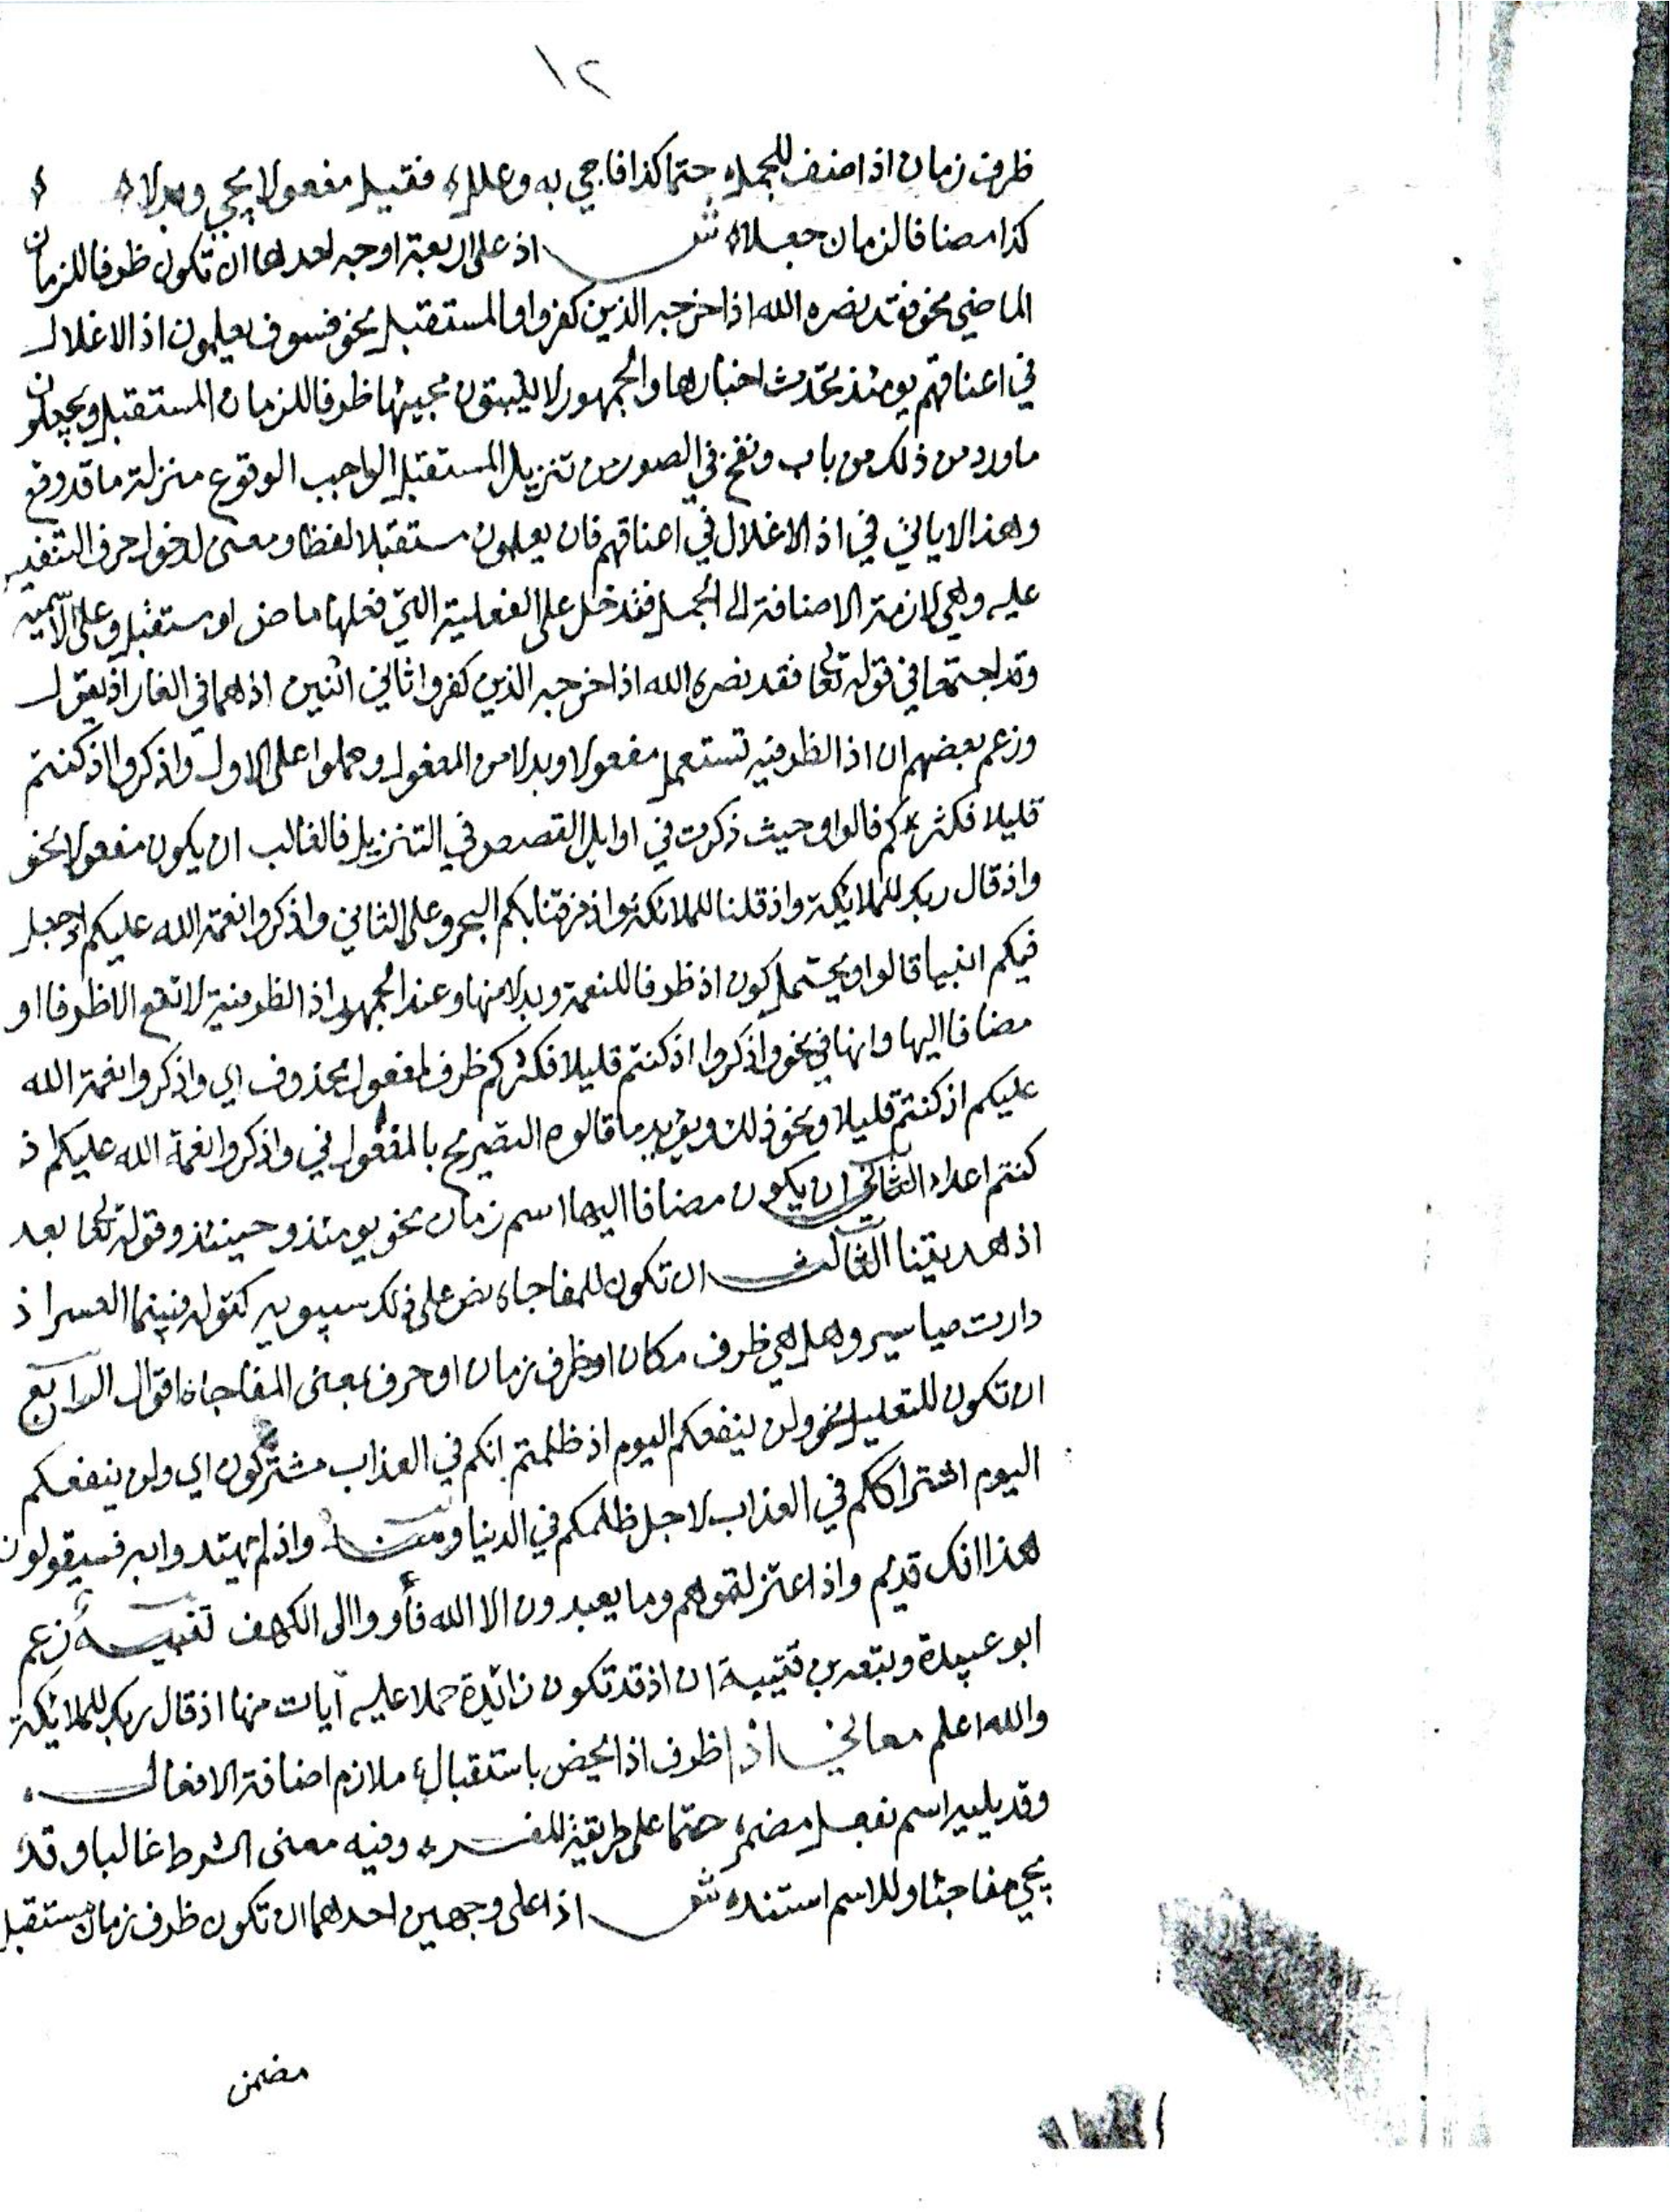 ١٢
ظرف زمان اذ اضف للجمله حتما كذا فاجي به وعللاه فقيل مفعولا يجي وبدلاه
كذا مضافا لزمان جعلاه ش اذ على اربعة اوجه احدها ان تكون ظرفا للزمان
الماضي نحو فقد نصره الله اذ اخرجه الذين كفروا والمستقبل نحو فسوف يعلمون اذ الاغلال
في اعناقهم يومئذ تحدث اخبارها والجمهور لا يثبتون مجيئها ظرفا للزمان المستقبل ويجعلون
ما ورد من ذلك من باب ونفخ في الصور من تنزيل المستقبل الواجب الوقوع منزلة ما قد وقع
وهذا لا ياتي في اذ الاغلال في اعناقهم فان يعلمون مستقبلا لفظا ومعنى لدخول حرف التنفيس
عليه وهي لازمة الاضافة الى الجمل فتدخل على الفعلية التي فعلها ماض او مستقبل وعلى الاسمية
وقد اجتمعا في قوله تعا فقد نصره الله اذ اخرجه الذين كفروا ثاني اثنين اذ هما في الغار اذ يقول
وزعم بعضهم ان اذ الظرفيه تستعمل مفعولا وبدلا من المفعول وحملوا على الاول واذكروا اذ كنتم
قليلا فكثركم قالوا وحيث ذكرت في اوايل القصص في التنزيل فالغالب ان يكون مفعولا نحو
واذ قال ربك للملائكة واذ قلنا للملائكة واذ فرقنا بكم البحر وعلى الثاني واذكروا نعمة الله عليكم اذ جعل
فيكم انبيا قالوا ويحتمل كون اذ ظرفا للنعمة وبدلا منها وعند الجمهور اذ الظرفية لا تقع الا ظرفا او
مضافا اليها وانها في نحو واذكروا اذ كنتم قليلا فكثركم ظرف لمفعول محذوف اي واذكروا نعمة الله
عليكم اذ كنتم قليلا ونحو ذلك ويؤيد ما قالوه التصريح بالمفعول في واذكروا نعمة الله عليكم اذ
كنتم اعداء الثاني ان يكون مضافا اليها اسم زمان نحو يومئذ وحينئذ وقوله تعا بعد
اذ هديتنا الثالث ان تكون للمفاجاه نص على ذلك سيبويه كقوله فبينما العسر اذ
دارت مياسير وهل هي ظرف مكان او ظرف زمان او حرف بمعنى المفاجاة اقوال الرابع
ان تكون للتعليل نحو ولن ينفعكم اليوم اذ ظلمتم انكم في العذاب مشتركون اي ولن ينفعكم
اليوم اشتراككم في العذاب لاجل ظلمكم في الدنيا ومنه واذ لم يهتدوا به فسيقولون
هذا افك قديم واذ اعتزلتموهم وما يعبدون الا الله فأووا الى الكهف تنبيه زعم
ابو عبيدة وتبعه بن قتيبة ان اذ قد تكون زائدة حملا عليه آيات منها اذ قال ربك للملائكة
والله اعلم معاني اذا ظرف اذا يخص باستقبال ملازم اضافة الافعال
وقد يليه اسم بفعل مضمر حتما على طريقة المفسر وفيه معنى الشرط غالبا وقد
يجي مفاجئا وللاسم استنده ش اذا على وجهين احدهما ان تكون ظرف زمان مستقبل
مضمن